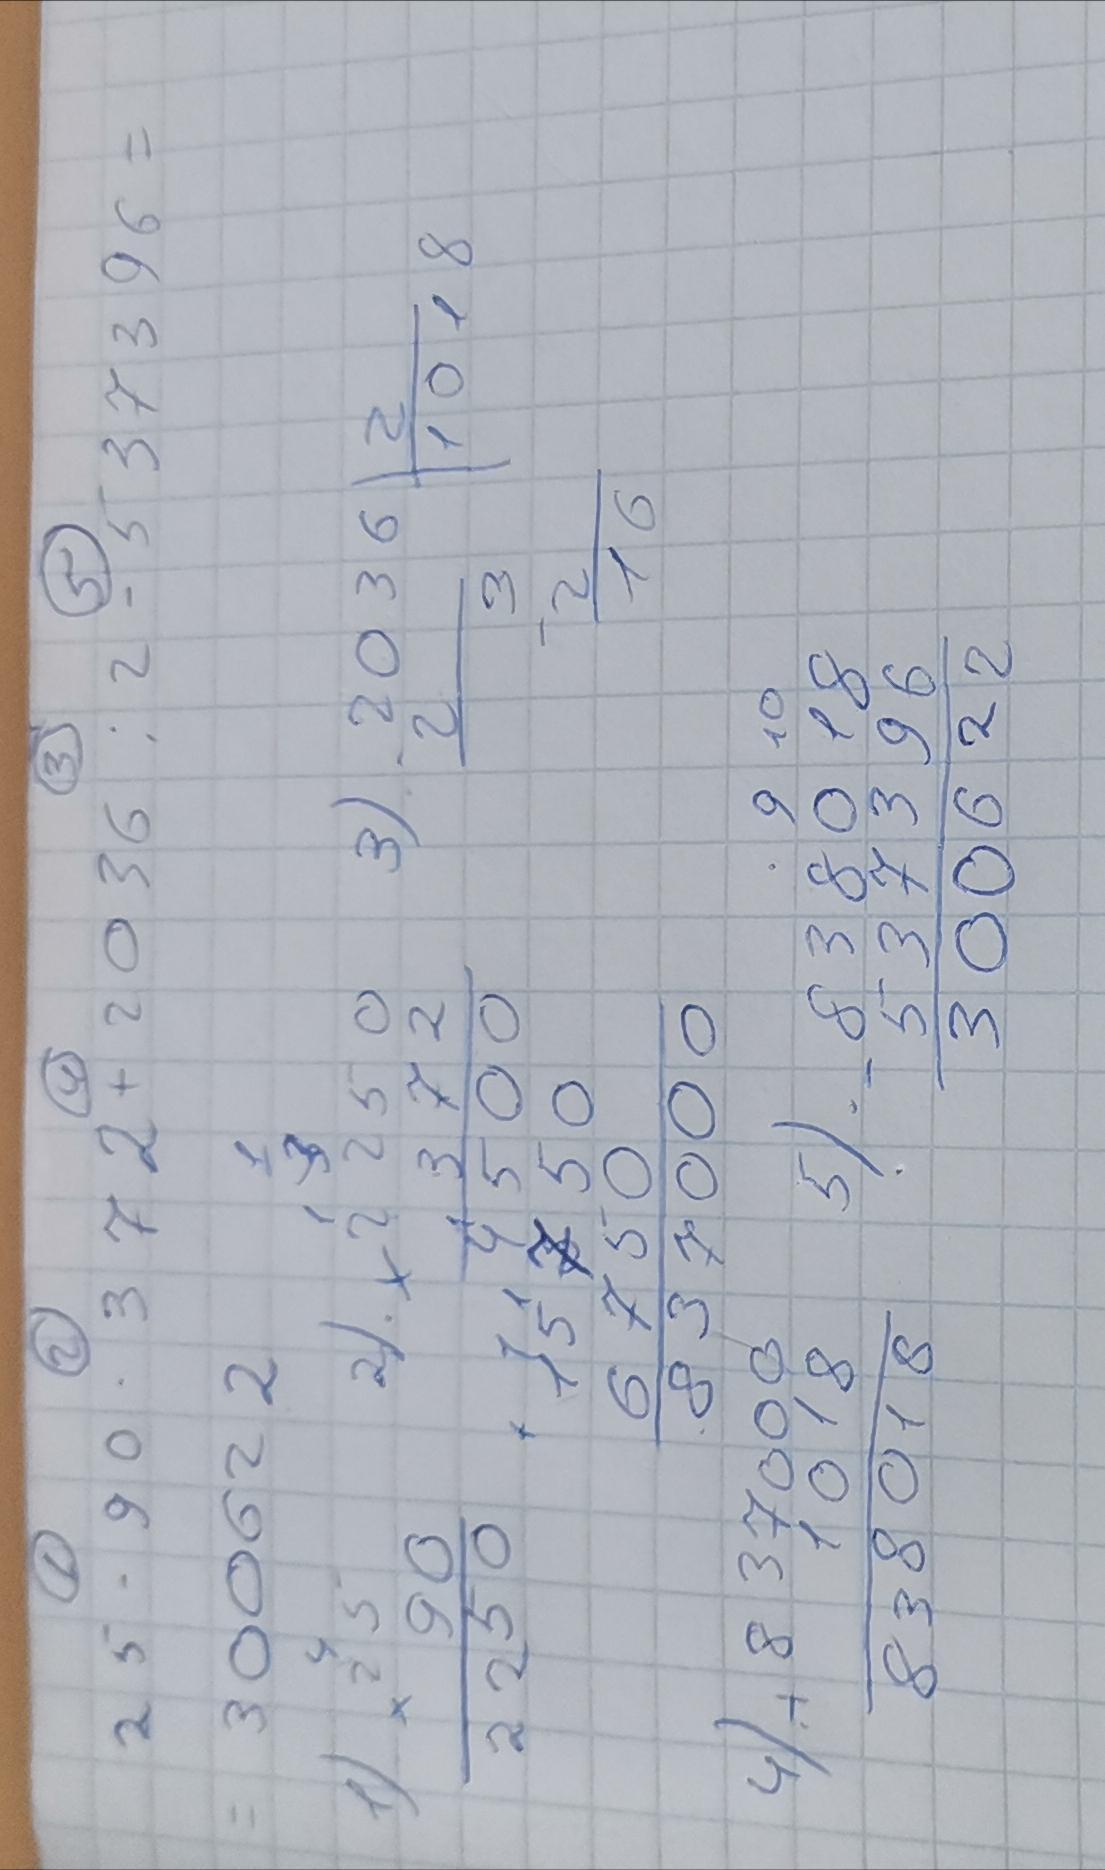 ① ② ④ ③ ⑤
25·90·372+2036:2-537396=
=300622
1) 4
×25
90
2250
2) 1
1 3
×2250
372
4500
+15750
6750
837000
3) -2036 | 2
2 1018
3
-2
16
4) +837000
1018
838018
5) . 9 10
-838018
537396
300622